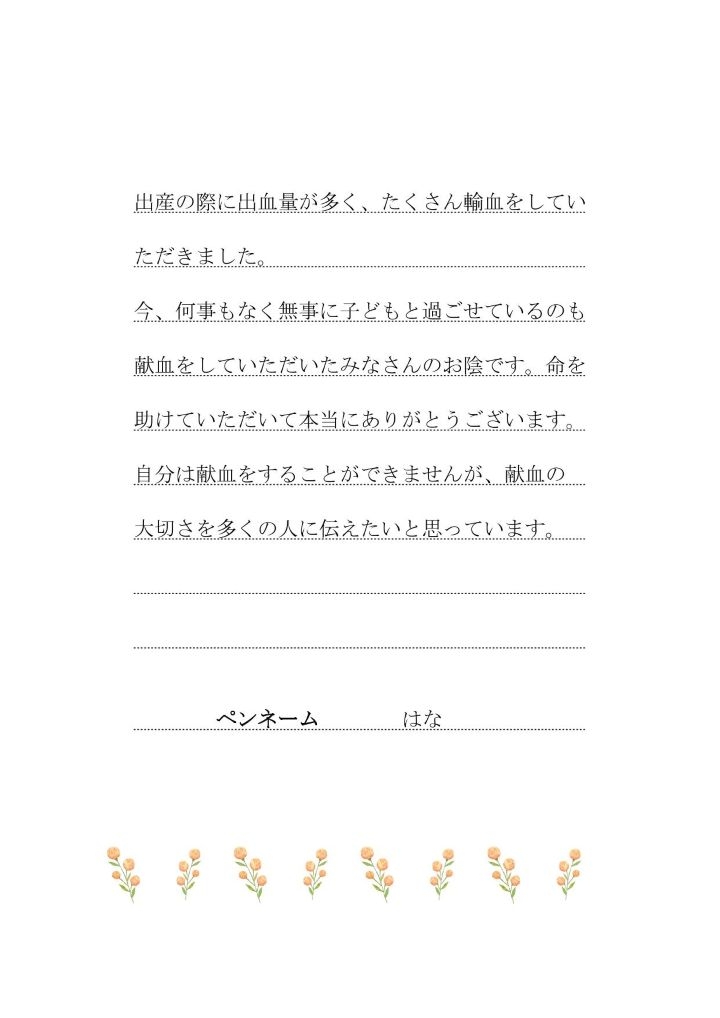 出産の際に出血量が多く、たくさん輸血をしてい
ただきました。
今、何事もなく無事に子どもと過ごせているのも
献血をしていただいたみなさんのお陰です。命を
助けていただいて本当にありがとうございます。
自分は献血をすることができませんが、献血の
大切さを多くの人に伝えたいと思っています。
ペンネーム　　　　はな